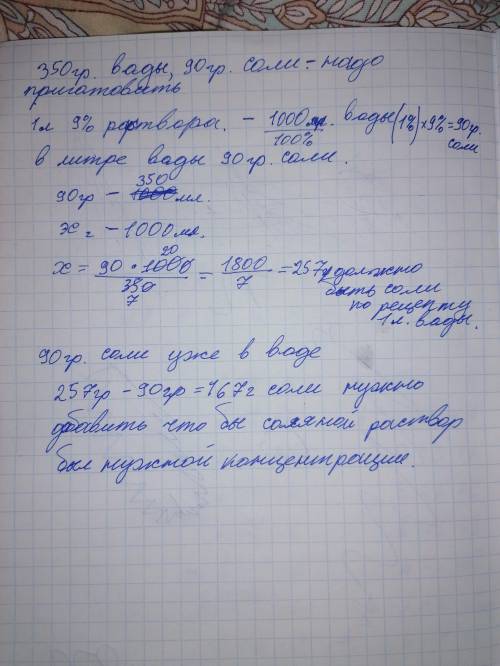 350гр. вады, 90гр. соли - надо
приготовить
1л 9% раствора. - 1000мл. вады (1%) × 9% = 90гр.
100% соли
в литре вады 90гр. соли.
350
90гр - 1000мл.
х г - 1000мл.
20
х = 90 · 1000 = 1800 = 257г должно
350 7 быть соли
7 по рецепту
1л. вады.
90гр. соли уже в воде
257гр - 90гр = 167г соли нужно
добавить что бы соляной раствор
был нужной концентрации.